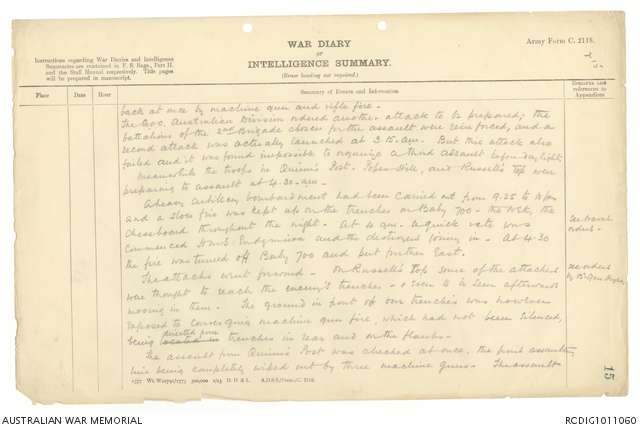 WAR DIARY
or
INTELLIGENCE SUMMARY.
(Erase heading not required.)
Army Form C. 2118.
Instructions regarding War Diaries and Intelligence
Summaries are contained in F. S. Regs., Part II.
and the Staff Manual respectively. Title pages
will be prepared in manuscript.
Place
Date
Hour
Summary of Events and Information
Remarks and
references to
Appendices
back at once by machine gun and rifle fire.
The G.O.C. Australian Division ordered another attack to be prepared; the
battalions of the 2nd Brigade chosen for the assault were reinforced, and a
second attack was actually launched at 3.15 am. But this attack also
failed and it was found impossible to organise a third assault before daylight.
Meanwhile the troops in Quinn's Post, Pope's Hill, and Russell's Top were
preparing to assault at 4.30 am.
A heavy artillery bombardment had been carried out from 9.25 to
and a slow fire was kept up on the trenches on Baby 700 - the Nek, the
chessboard throughout the night. At 4 am. a quick rate was
commenced H.M.S. Endymion and the destroyers in - At 4-30
the fire was turned off Baby 700 and put further East.
The attacks went forward - On Russell's Top some of the attackers
were thought to reach the enemy's trenches - seen to be seen afterwards
moving in them. The ground in front of our trenches was however
exposed to converging machine gun fire, which had not been silenced,
directed from
being located in trenches in rear and on the flanks.
The assault from Quinn's Post was checked at once, the first assaulting
line being completely wiped out by three machine guns. The assault
see naval
orders -
see orders
by
15
A.D.S.S./Forms/C. 2118.
AUSTRALIAN WAR MEMORIAL
RCDIG1011060